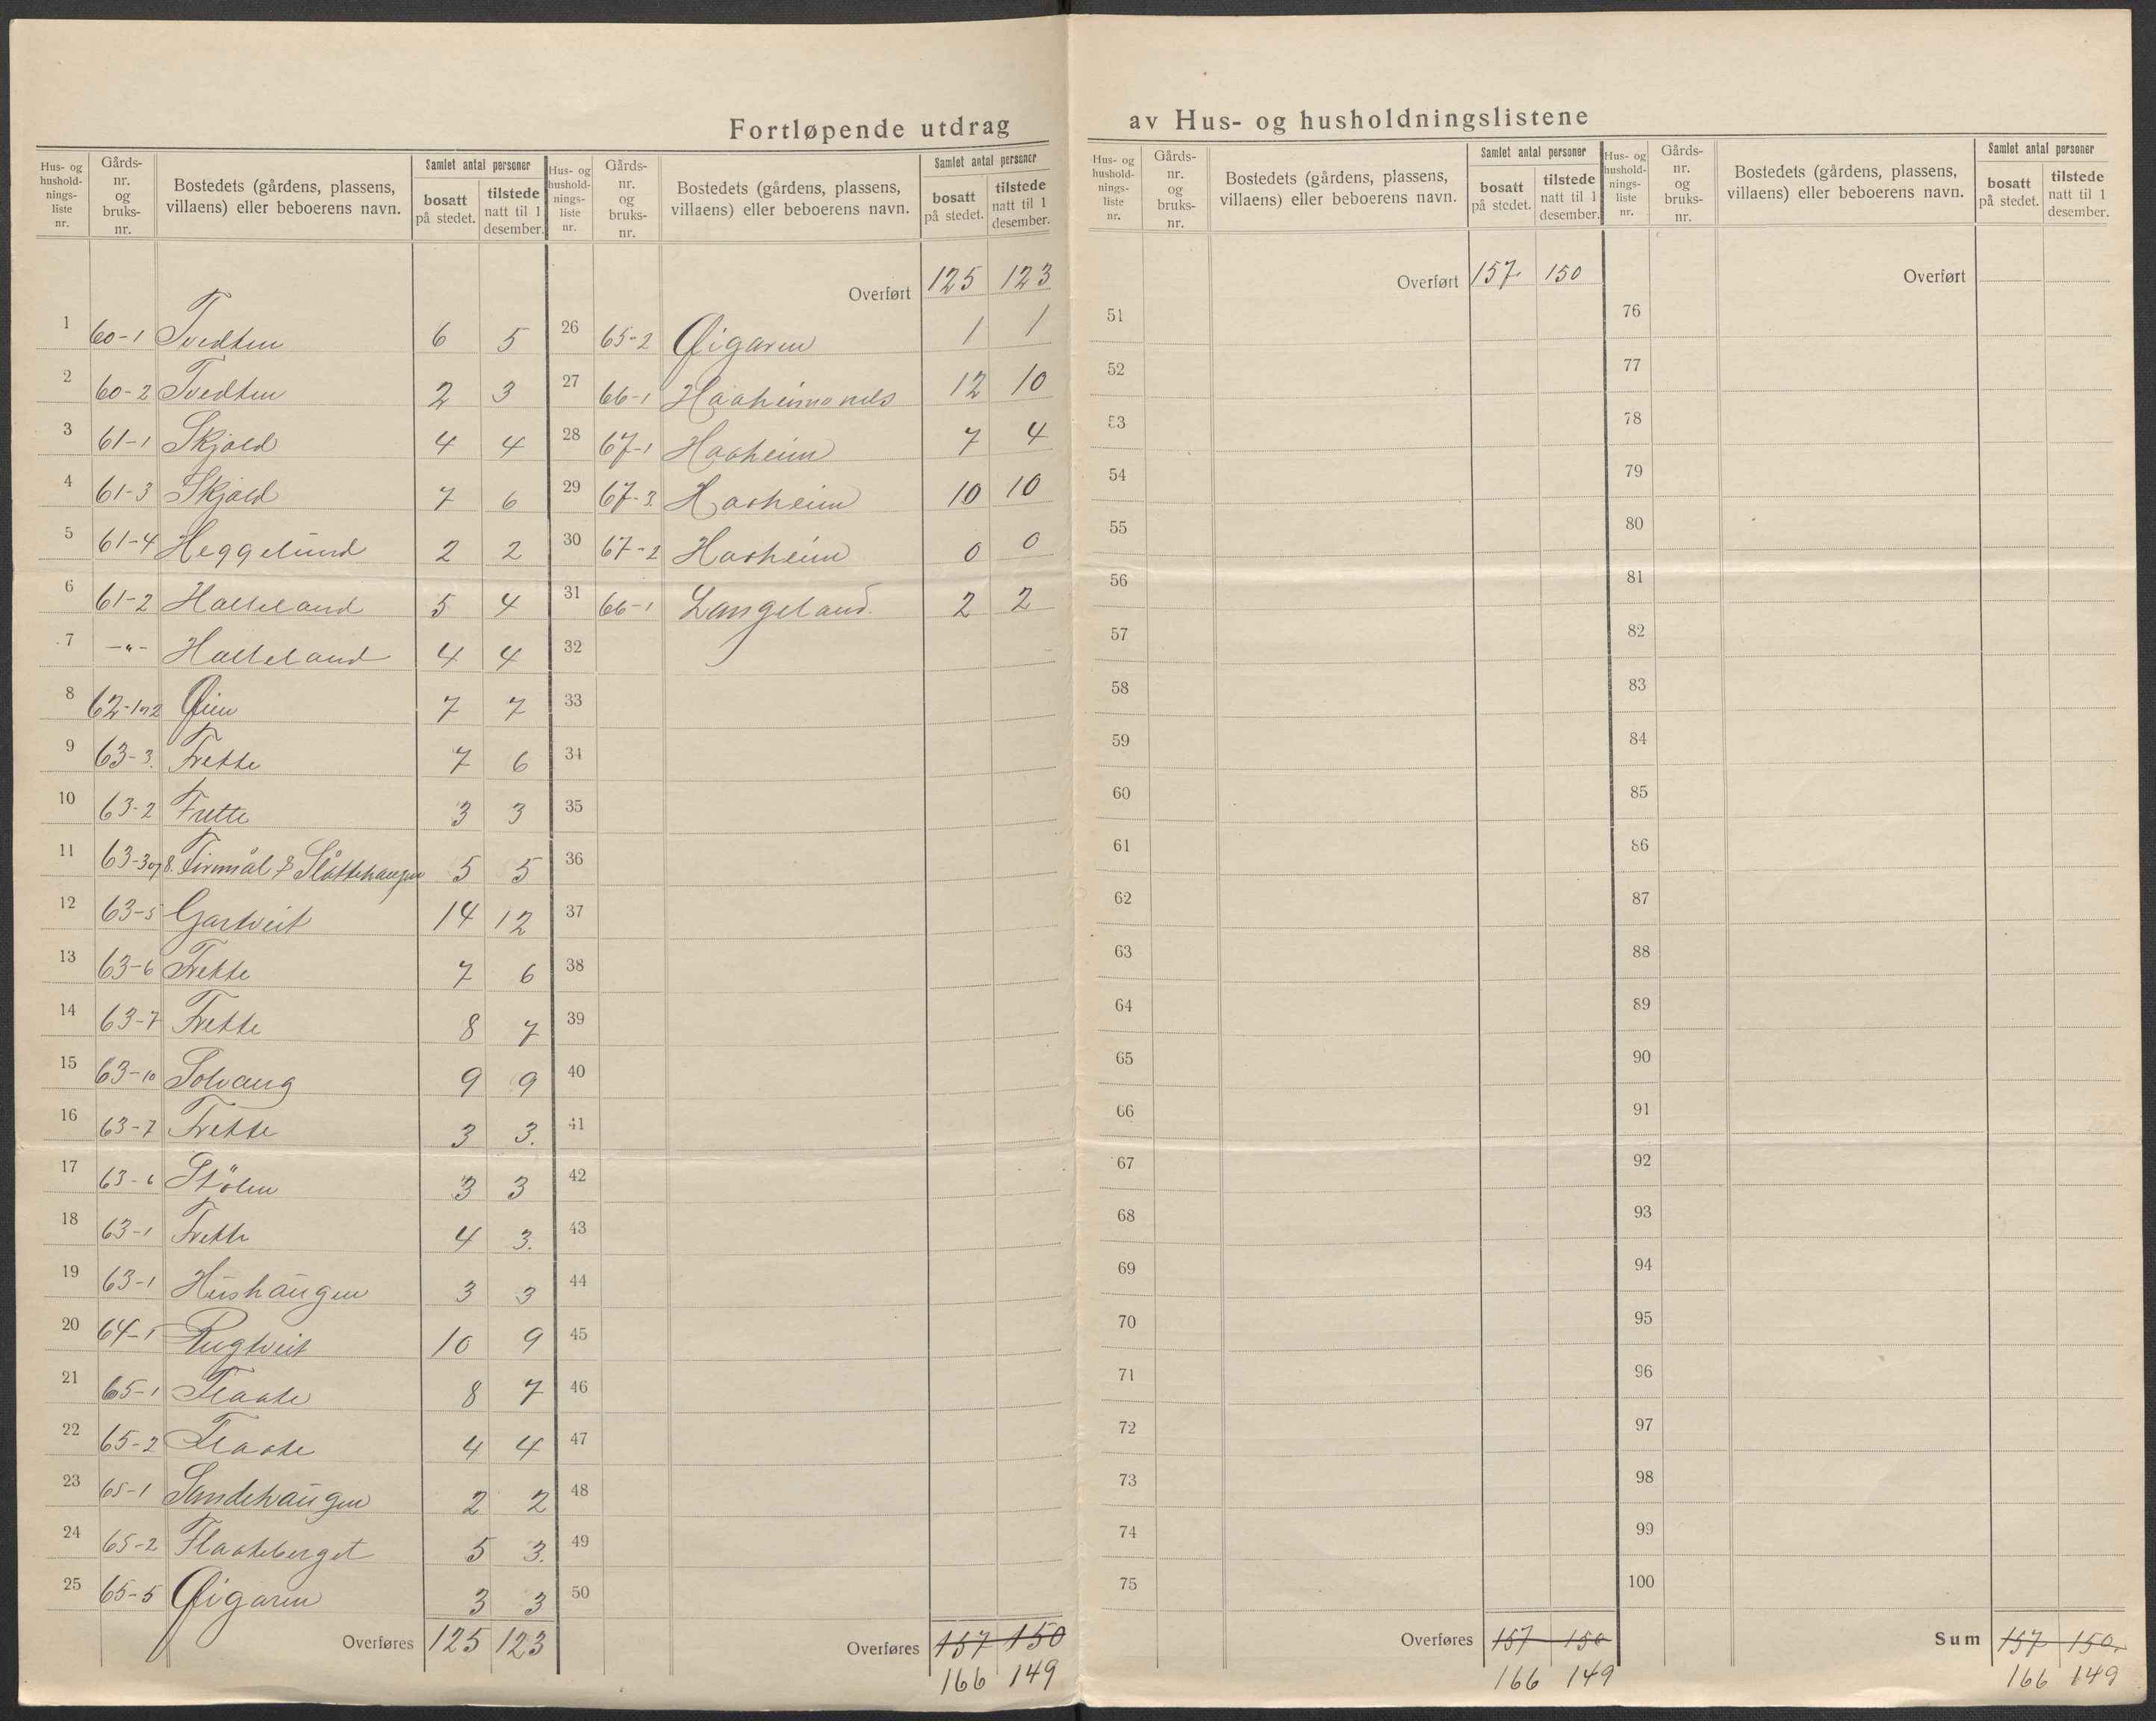 Fortløpende utdrag av Hus- og husholdningslistene
Hus- og husholdningsliste nr. | Gårds-nr. og bruks-nr. | Bostedets (gårdens, plassens, villaens) eller beboerens navn. | Samlet antal personer | bosatt på stedet. | tilstede natt til 1 desember.
1 60-1 Tvedten 6 5
2 60-2 Tvedten 2 3
3 61-1 Skjold 4 4
4 61-3 Skjold 7 6
5 61-4 Heggelund 2 2
6 61-2 Halleland 5 4
7 -"- Halleland 4 4
8 62-1 og 2 Øien 7 7
9 63-3. Frette 7 6
10 63-2 Frette 3 3
11 63-3 og 8. & Slåttehaugen 5 5
12 63-5 Gartveit 14 12
13 63-6 Frette 7 6
14 63-7 Frette 8 7
15 63-10 Solvang 9 9
16 63-7 Frette 3 3.
17 63-6 Stölen 3 3
18 63-1 Frette 4 3.
19 63-1 Hushaugen 3 3
20 64-1 Rugtveit 10 9
21 65-1 Flaate 8 7
22 65-2 Flaate 4 4
23 65-1 Sandehaugen 2 2
24 65-2 Flaateberget 5 3.
25 65-5 Øigaren 3 3
Overføres 125 123
Hus- og husholdningsliste nr. | Gårds-nr. og bruks-nr. | Bostedets (gårdens, plassens, villaens) eller beboerens navn. | Samlet antal personer | bosatt på stedet. | tilstede natt til 1 desember.
Overført 125 123
26 65-2 Øigaren 1 1
27 66-1 Haaheim 12 10
28 67-1 Haaheim 7 4
29 67-3. Haaheim 10 10
30 67-2 Haaheim 0 0
31 66-1 Langeland. 2 2
32
33
34
35
36
37
38
39
40
41
42
43
44
45
46
47
48
49
50
Overføres 157 150
166 149
Hus- og husholdningsliste nr. | Gårds-nr. og bruks-nr. | Bostedets (gårdens, plassens, villaens) eller beboerens navn. | Samlet antal personer | bosatt på stedet. | tilstede natt til 1 desember.
Overført 157 150
51
52
53
54
55
56
57
58
59
60
61
62
63
64
65
66
67
68
69
70
71
72
73
74
75
Overføres 157 150
166 149
Hus- og husholdningsliste nr. | Gårds-nr. og bruks-nr. | Bostedets (gårdens, plassens, villaens) eller beboerens navn. | Samlet antal personer | bosatt på stedet. | tilstede natt til 1 desember.
Overført
76
77
78
79
80
81
82
83
84
85
86
87
88
89
90
91
92
93
94
95
96
97
98
99
100
Sum 157 150.
166 149